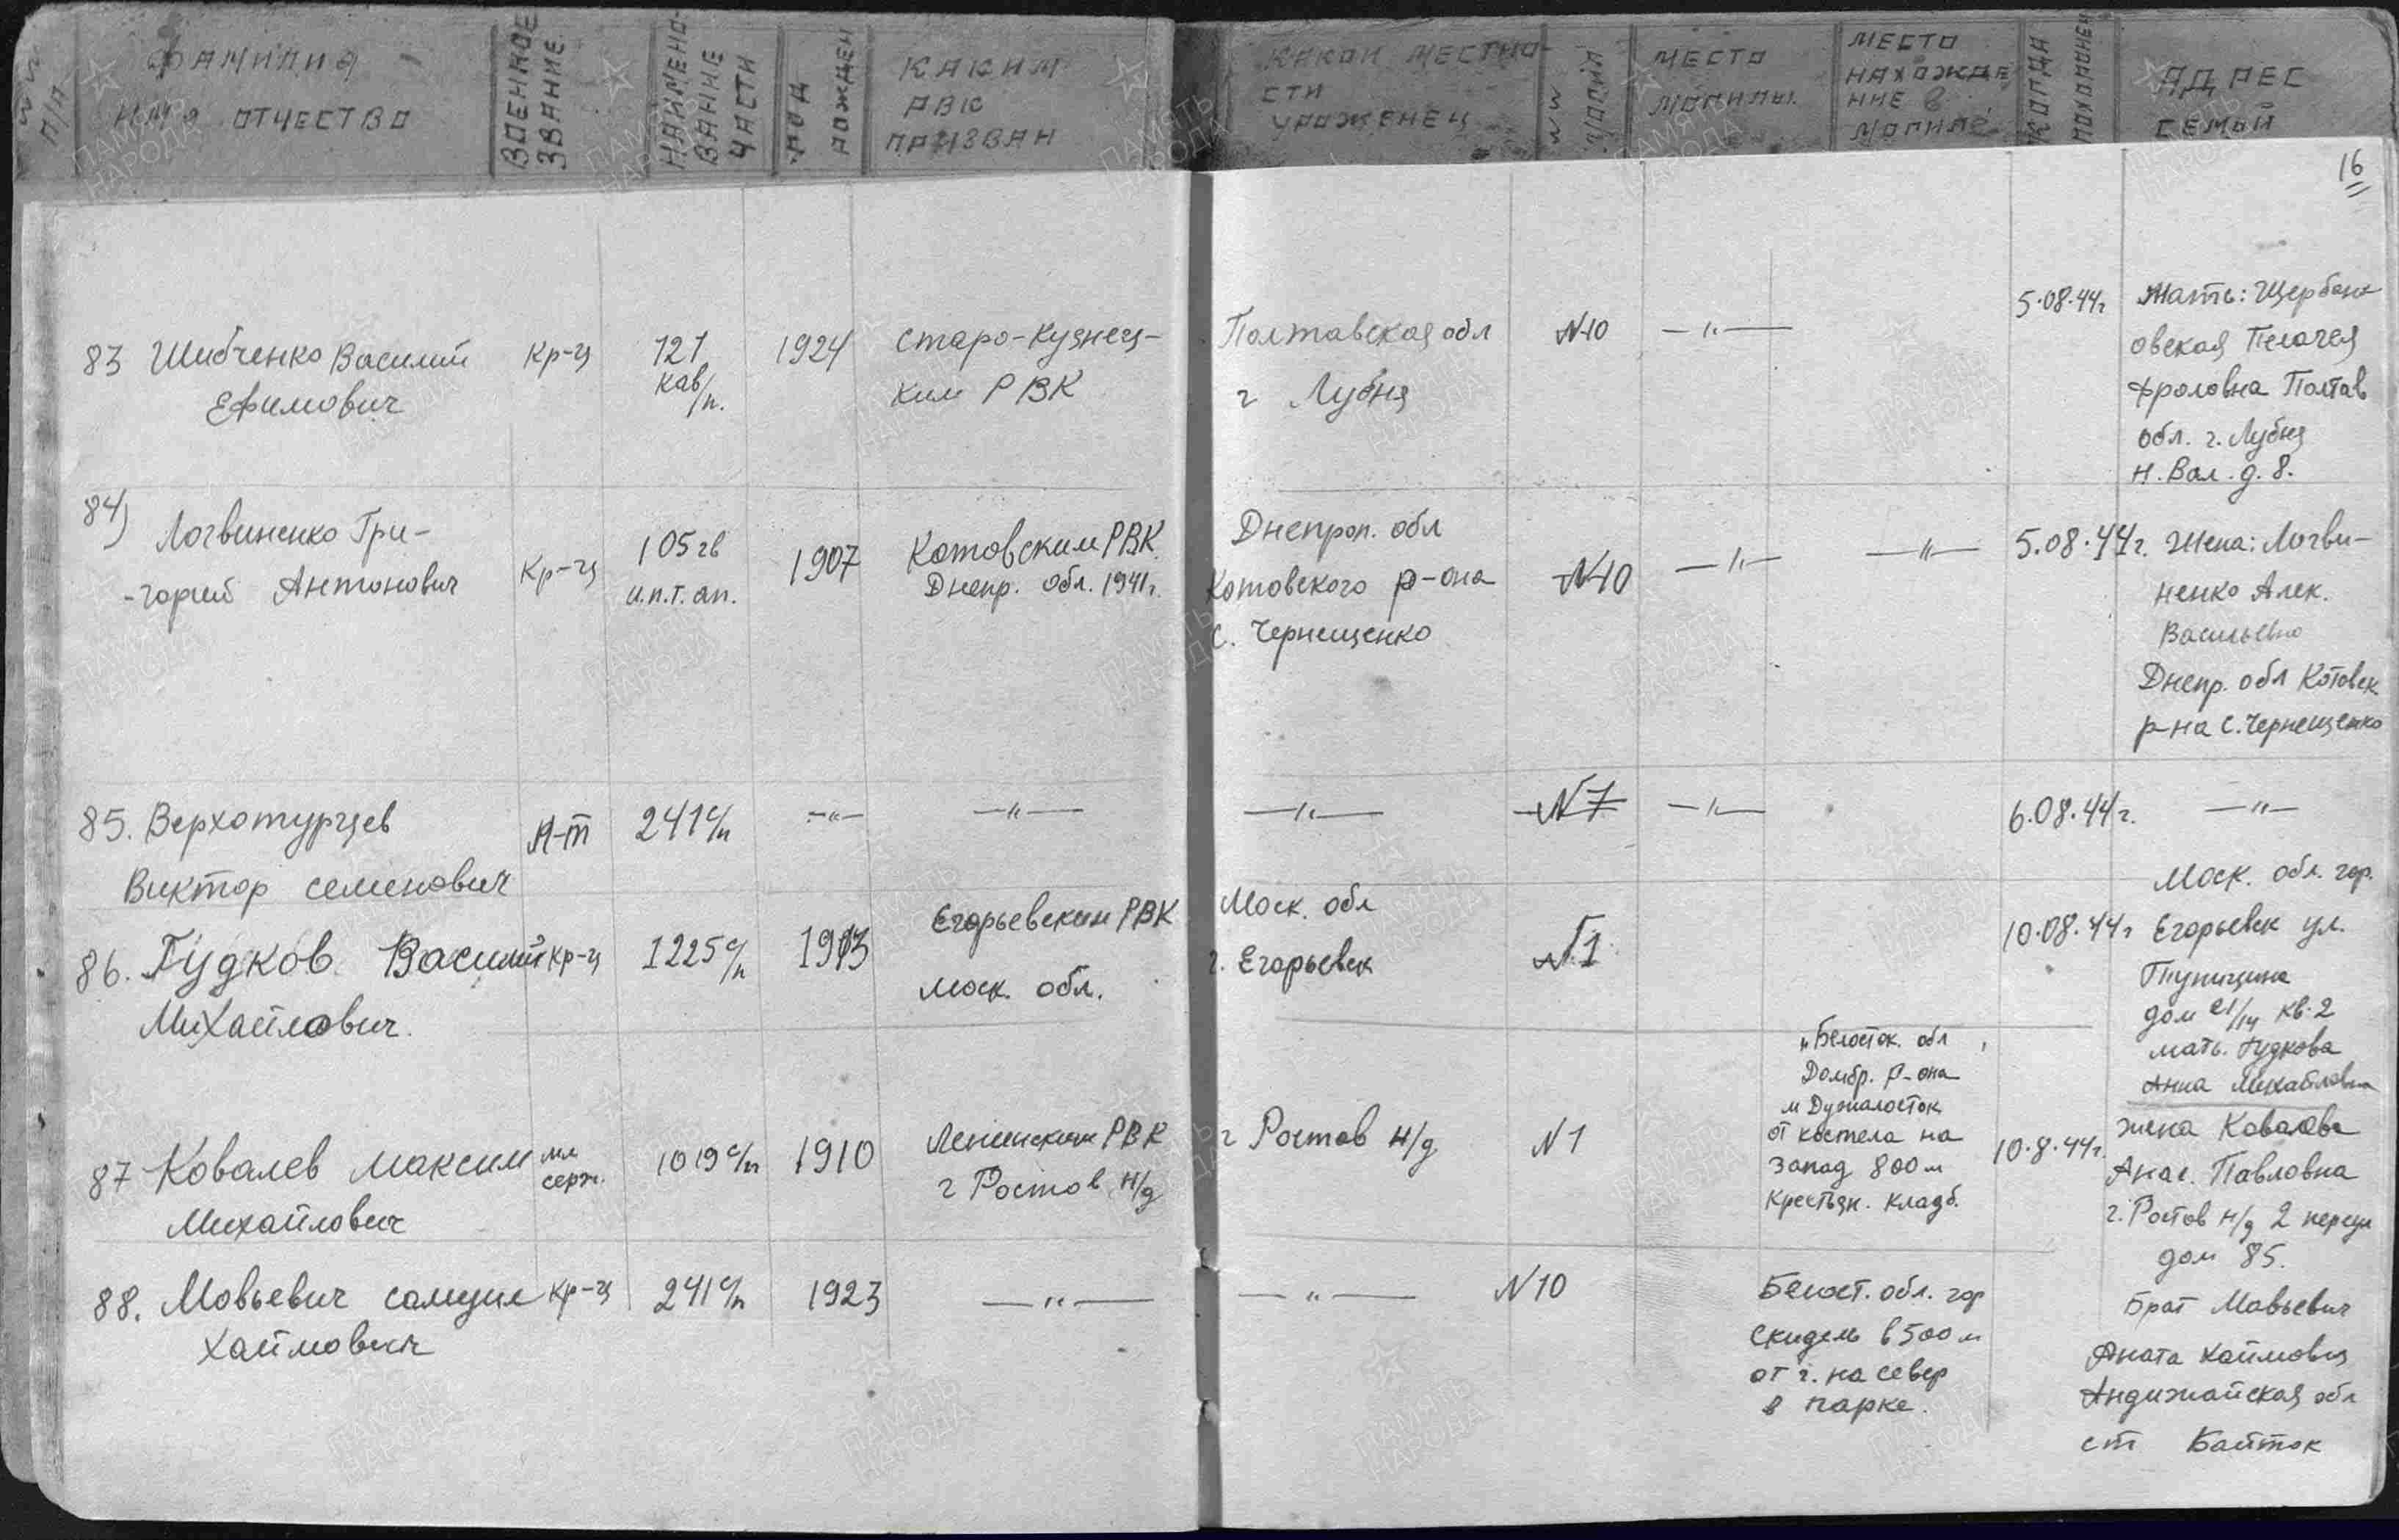 №№ п/п
ФАМИЛИЯ
ИМЯ ОТЧЕСТВО
ВОЕННОЕ ЗВАНИЕ
НАИМЕНО-
ВАНИЕ
ЧАСТИ
ГОД РОЖДЕН
КАКИМ
РВК
ПРИЗВАН
КАКОЙ МЕСТНО-
СТИ
УРОЖЕНЕЦ
№№
МЕСТО
МОГИЛЫ
МЕСТО
НАХОЖДЕ
НИЕ В
МОГИЛЕ
КОГДА ПОХОРОНЕН
АДРЕС
СЕМЬИ
16
83 Шибченко Василий
Ефимович
Кр-ц
121
кав/п.
1924
Старо-Кузнец-
ким РВК
Полтавская обл
г Лубня
№10
—"—
5.08.44г
Мать: Щербан
овская Пелагея
Фроловна Полтав
обл. г. Лубня
Н. Вал. д. 8.
84) Логвиненко Гри-
-горий Антонович
Кр-ц
105 гв
и.п.т.ап.
1907
Котовским РВК
Днепр. обл. 1941г.
Днепроп. обл
Котовского р-она
с. Чернещенко
№10
—"—
—"—
5.08.44г.
Жена: Логви-
ненко Алек.
Васильевна
Днепр. обл Котовск
р-на с. Чернещенко
85. Верхотурцев
Виктор семенович
Л-т
241 с/п
—"—
—"—
—"—
№7
—"—
6.08.44г.
—"—
86. Гудков Василий
Михайлович
Кр-ц
1225 с/п
1913
Егорьевским РВК
Моск. обл.
Моск. обл
г. Егорьевск
№1
10.08.44г
Моск. обл. гор.
Егорьевск ул.
дом 21/14 кв. 2
мать. Гудкова
Анна Михайловна
87 Ковалев Максим
Михайлович
мл
серж.
1019 с/п
1910
Ленинским РВК
г Ростов н/д
г Ростов н/д
№1
"Белосток. обл
Домбр. р-она
м Дужалосток
от костела на
запад 800 м
Крестьян. кладб.
10.8.44г.
жена Ковалева
Анас. Павловна
г. Ростов н/д 2
дом 85.
88. Мовьевич самуил
Хаймович
Кр-ц
241 с/п
1923
—"—
—"—
№10
Белост. обл. гор
Скидель в 500 м
от г. на север
в парке.
Брат Мовьевич
Аната Хаймович
Андижайская обл
ст Байток